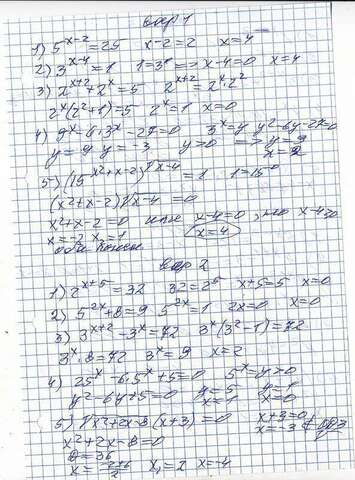 вар 1
1) 5^{x-2} = 25 x-2=2 x=4
2) 3^{x-4} = 1 1=3^0 => x-4=0 x=4
3) 2^{x+2} + 2^x = 5 2^{x+2} = 2^x·2^2
2^x(2^2+1)=5 2^x=1 x=0
4) 9^x-6·3^x-27=0 3^x=y y^2-6y-27=0
y=9 y=-3 y>0 => y=9
x=2
5) (15^{x^2+x-2})^{√x-4} = 1 1=15^0
(x^2+x-2)√x-4 = 0
x^2+x-2=0 или x-4=0, но x-4≥0
x=-2 x=1 x=4
вар 2
1) 2^{x+5} = 32 32=2^5 x+5=5 x=0
2) 5^{2x}+8=9 5^{2x}=1 2x=0 x=0
3) 3^{x+2}-3^x=72 3^x(3^2-1)=72
3^x·8=72 3^x=9 x=2
4) 25^x-6·5^x+5=0 5^x=y>0
y^2-6y+5=0 y=5 y=1
x=1 x=0
5) √x^2+2x-8 (x+3)=0 x+3=0
x^2+2x-8=0 x=-3 ∉ ОДЗ
D=36
x=\frac{-2±6}{2} x_1=2 x=-4